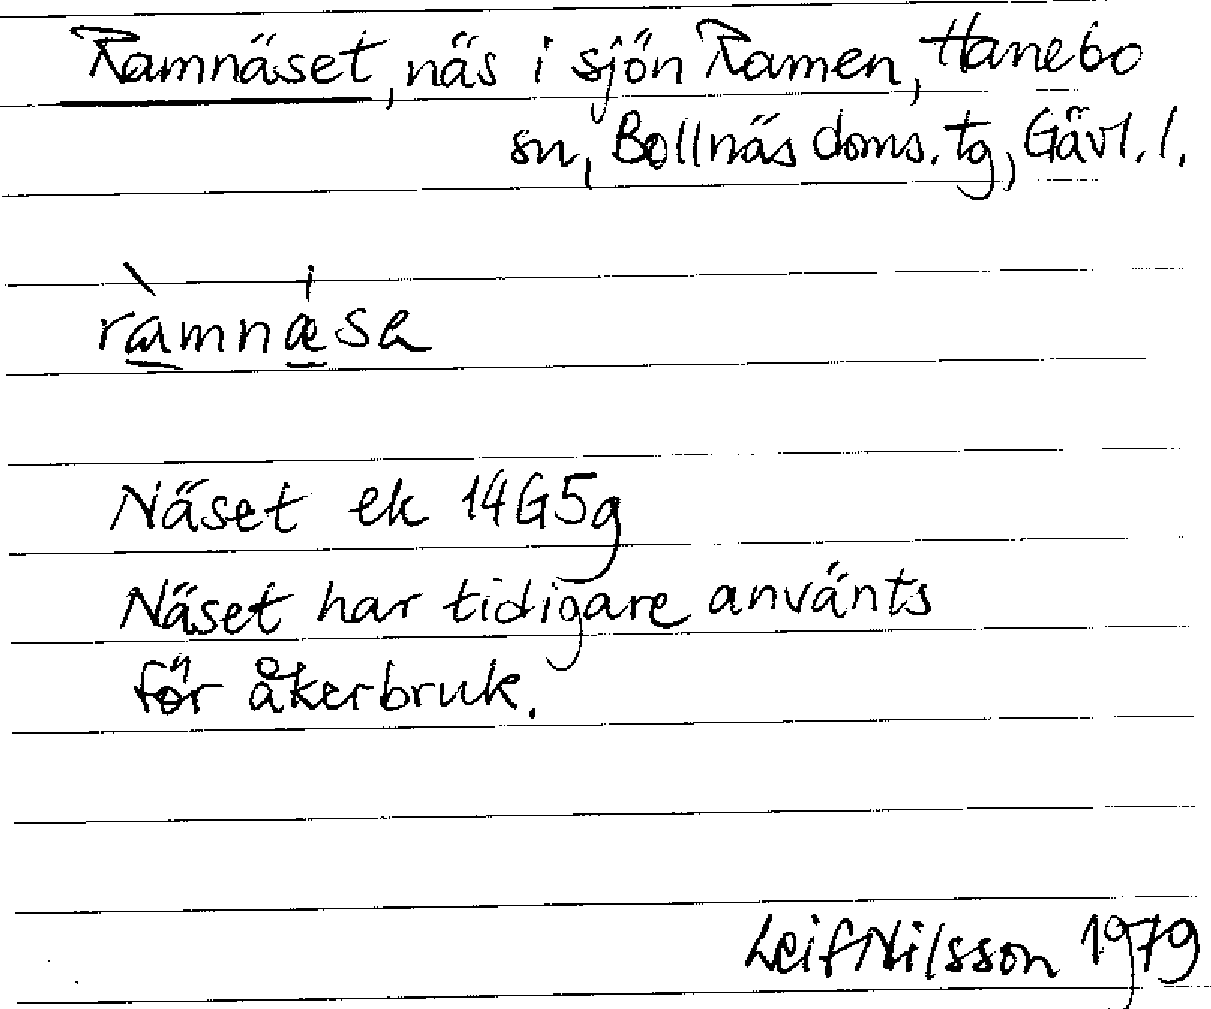 Ramnäset, näs i sjön Ramen, Hanebo
sn, Bollnäs doms. tg, Gävl. l.
ràmnǽsa
Näset ek 14G5g
Näset har tidigare använts
för åkerbruk.
Leif Nilsson 1979